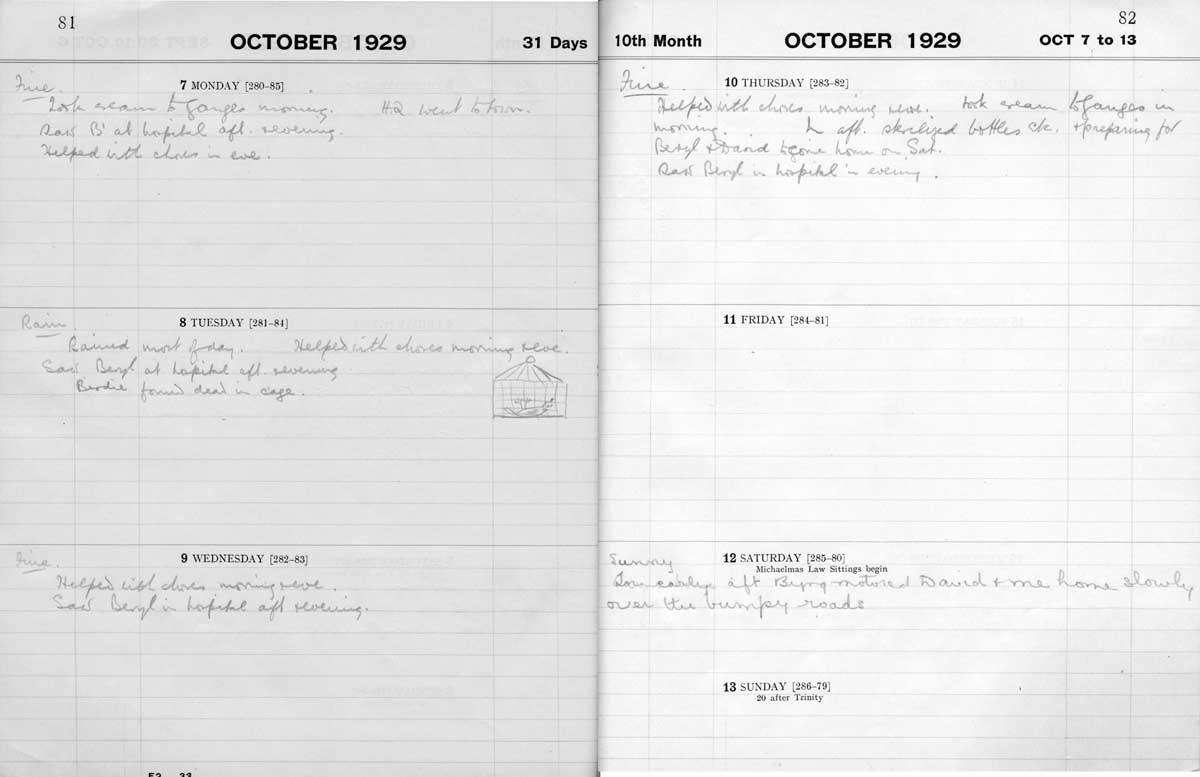 81
OCTOBER 1929
31 Days
7 MONDAY [280–85]
Fine.
Took cream to Ganges morning. HQ went to town.
Saw B' at hospital aft. & evening.
Helped with chores in eve.
8 TUESDAY [281–84]
Rain
Rained most of day. Helped with chores morning & eve.
Saw Beryl at hospital aft. & evening
Birdie found dead in cage.
9 WEDNESDAY [282–83]
Fine
Helped with chores morning & eve.
Saw Beryl in hospital aft & evening.
52 33
82
10th Month
OCTOBER 1929
OCT 7 to 13
10 THURSDAY [283–82]
Fine
Helped with chores morning & eve. Took cream to Ganges in
morning. In aft. sterilized bottles etc. & preparing for
Beryl & David to come home on Sat.
Saw Beryl in hospital in evening.
11 FRIDAY [284–81]
12 SATURDAY [285–80]
Michaelmas Law Sittings begin
Sunny
early aft motored David & me home slowly
over the bumpy roads
13 SUNDAY [286–79]
20 after Trinity